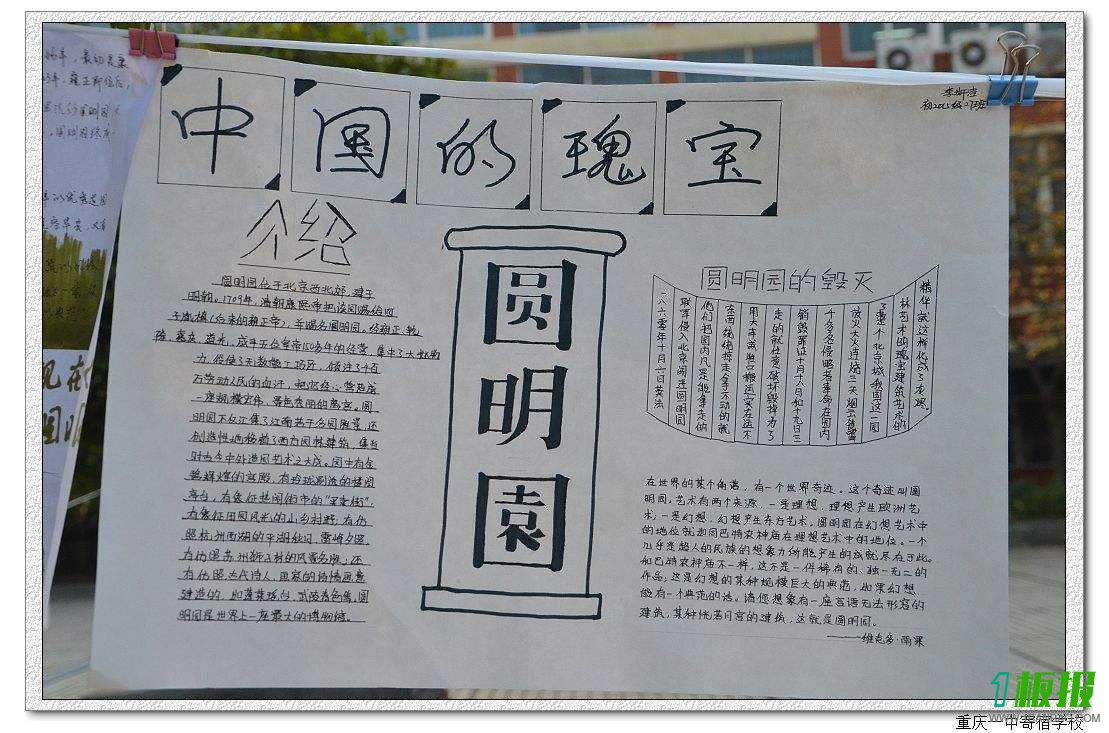 中国的瑰宝
初2015级27班
介绍
圆明园位于北京西北郊,建于
明朝。1709年,清朝康熙帝把该园赐给四
子胤禛(后来的雍正帝),并赐名圆明园。经雍正、乾
隆、嘉庆、道光、咸丰五位皇帝150多年的经营,集中了大批物
力,役使了无数能工巧匠,倾注了千百
万劳动人民的血汗,把它精心营造成
一座规模宏伟、景色秀丽的离宫。圆
明园不仅汇集了江南若干名园胜景,还
创造性地移植了西方园林建筑,集当
时古今中外造园艺术之大成。园中有金
碧辉煌的宫殿,有玲珑剔透的楼阁
亭台,有象征热闹街市的“买卖街”,
有象征田园风光的山乡村野,有仿
照杭州西湖的平湖秋月、雷峰夕照,
有仿照苏州狮子林的风景名胜;还
有仿照古代诗人、画家的诗情画意
建造的,如蓬莱瑶台、武陵春色等。圆
明园是世界上一座最大的博物馆。
圆
明
园
圆明园的毁灭
一八六零年十月六日英法
联军侵入北京闯进圆明园
他们把园内凡是能拿走的
东西统统掠走拿不动的就
用大车或牲口搬运实在运不
走的就任意破坏毁掉为了
销毁罪证十月十八日和十九日三
千多名侵略者奉命在园内
放火大火连烧三天烟云笼罩
了整个北京城我国这一园
林艺术的瑰宝建筑艺术的
精华就这样化成了灰烬。
在世界的某个角落,有一个世界奇迹。这个奇迹叫圆
明园。艺术有两个来源,一是理想,理想产生欧洲艺
术;一是幻想,幻想产生东方艺术。圆明园在幻想艺术中
的地位就如同巴特农神庙在理想艺术中的地位。一个
几乎是超人的民族的想象力所能产生的成就尽在于此。
和巴特农神庙不一样,这不是一件稀有的、独一无二的
作品;这是幻想的某种规模巨大的典范,如果幻想
能有一个典范的话。请您想象有一座言语无法形容的
建筑,某种恍若月宫的建筑,这就是圆明园。
——维克多·雨果
1板报
重庆一中寄宿学校